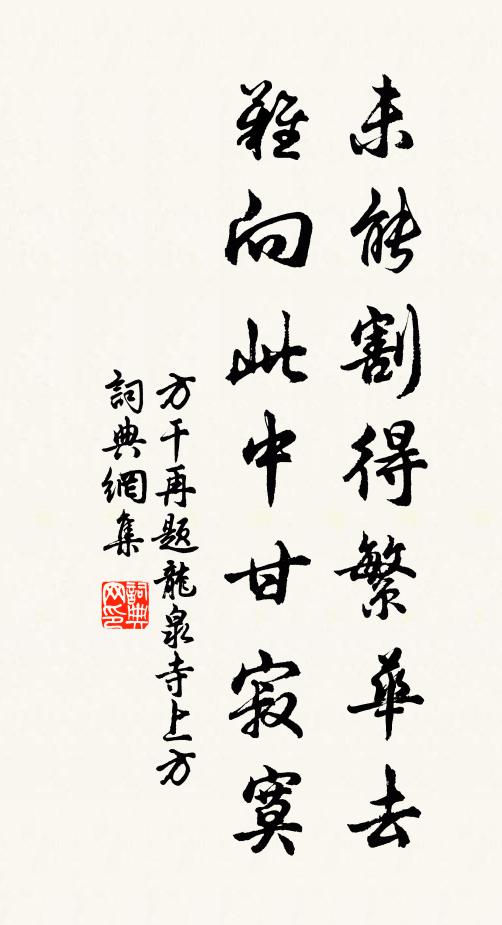 未能割得繁華去
難向此中甘寂寞
方干再題龍泉寺上方
詞典網集
詞典网印